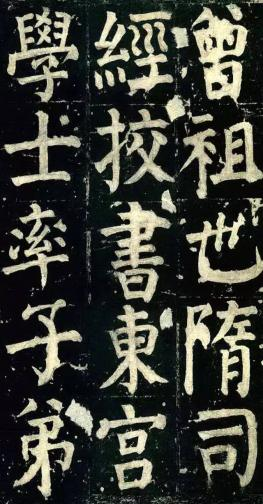 曾祖世隋司
經挍書東宮
學士率子弟